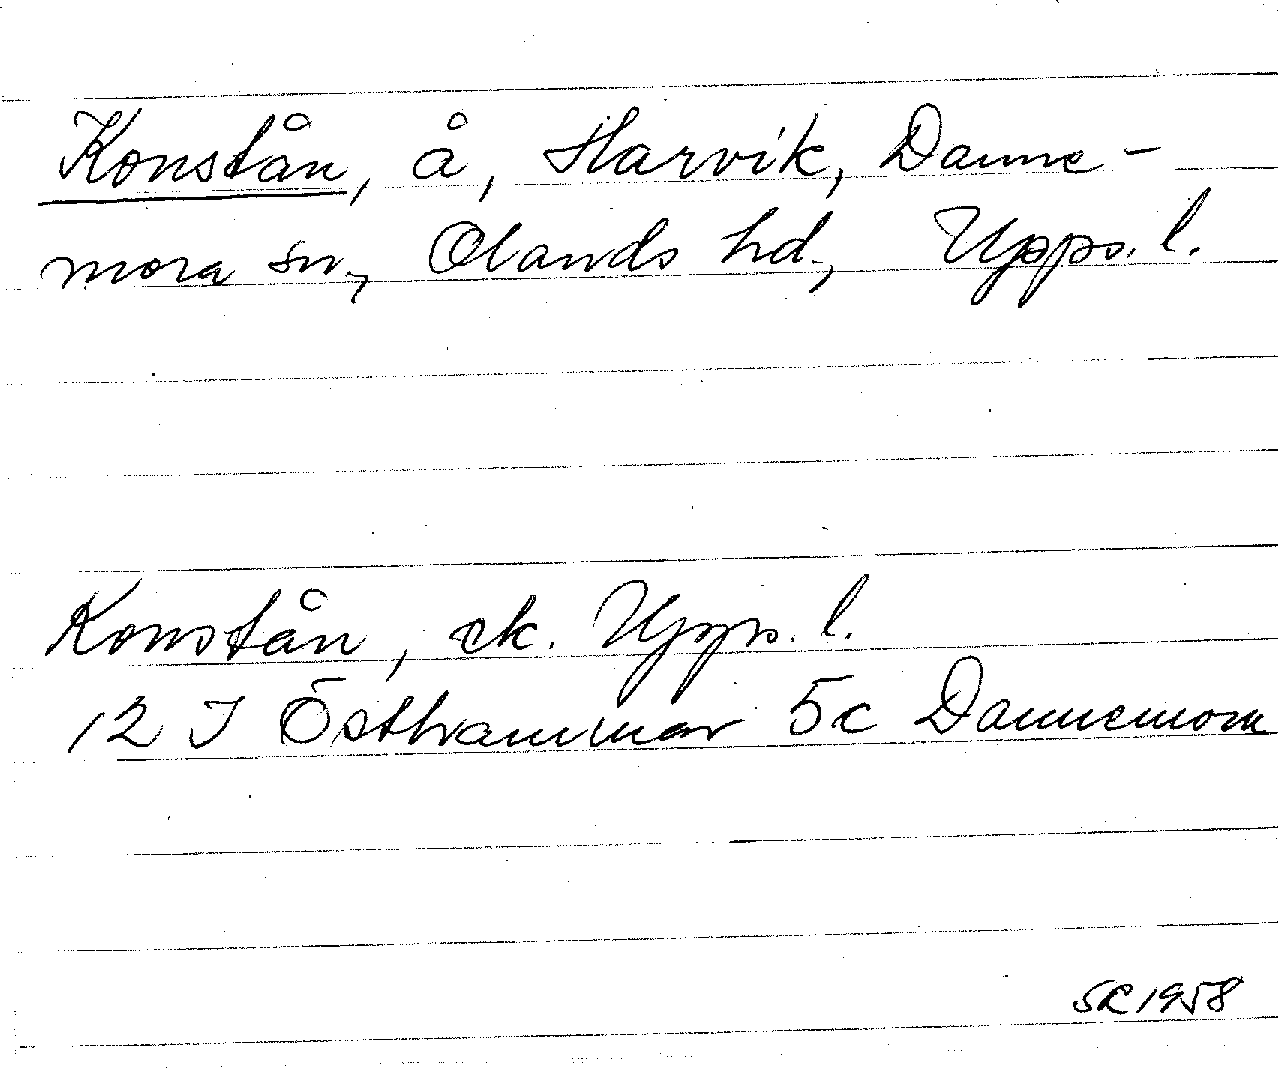 Konstån, å, Harvik, Danne-
mora sn, Olands hd., Upps. l.
Konstån, ek. Upps. l.
12 I Östhammar 5c Dannemora
SR 1958